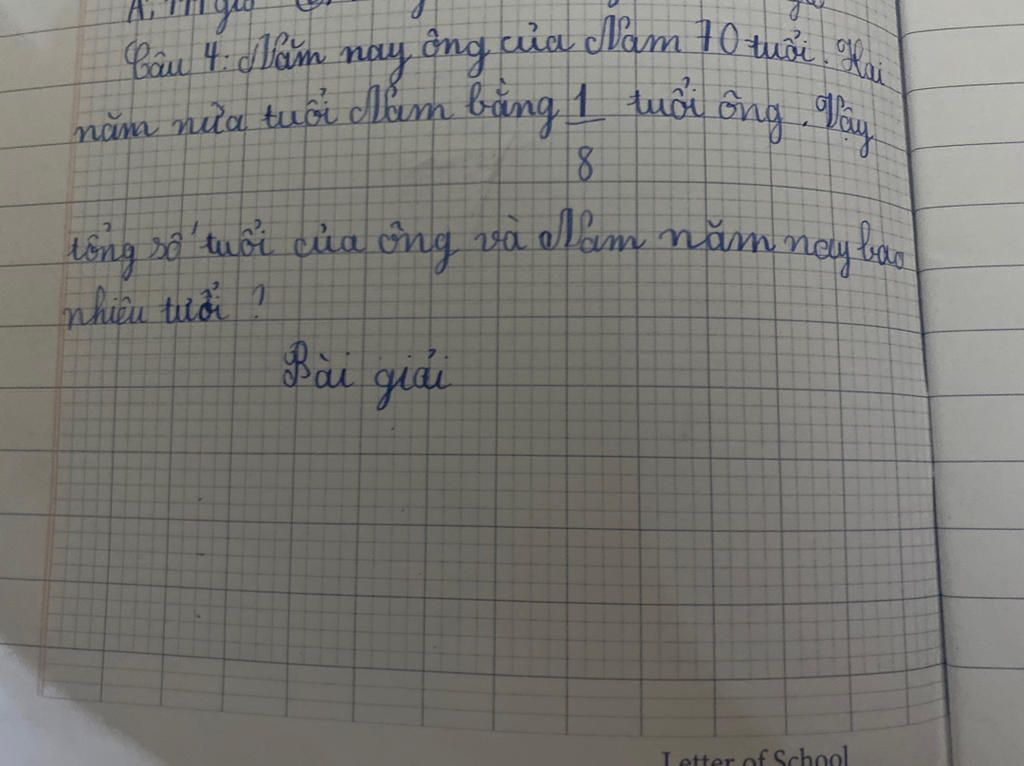 Câu 4: Năm nay ông của Nam 70 tuổi. Hai
năm nữa tuổi Nam bằng 1/8 tuổi ông. Vậy
tổng số tuổi của ông và Nam năm nay bao
nhiêu tuổi?
Bài giải
Letter of School